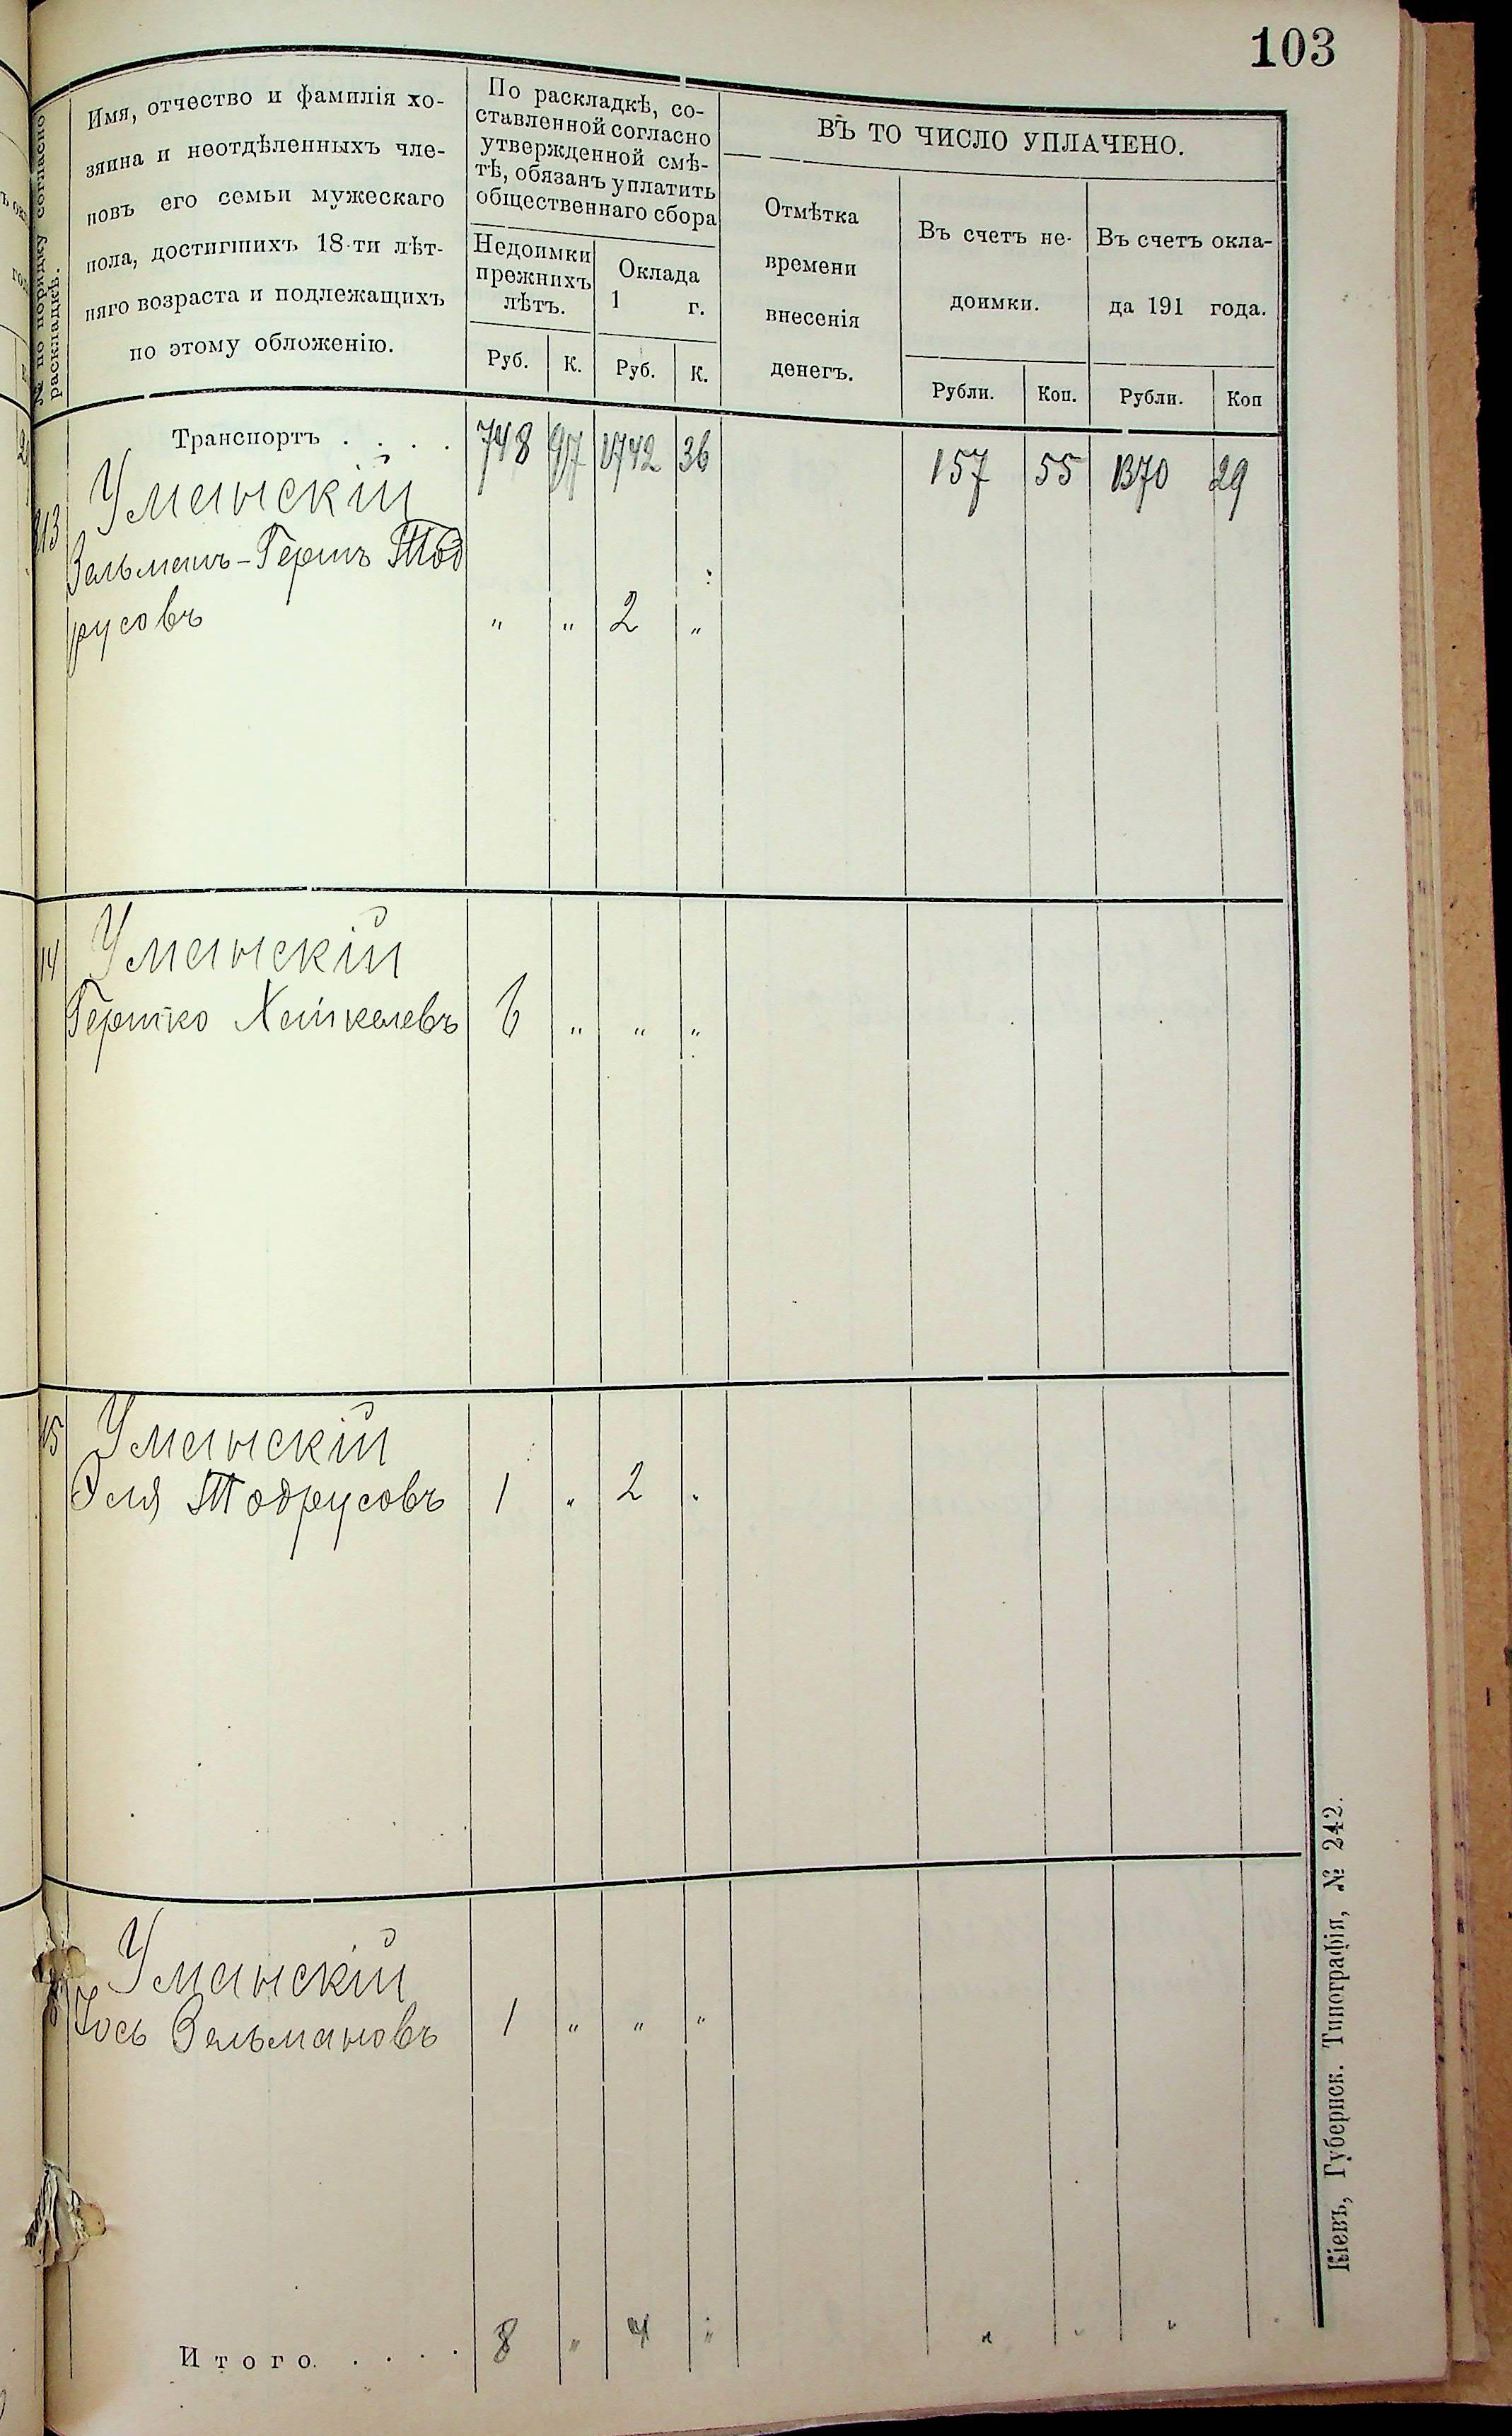 103
№ по порядку согласно раскладкѣ.
Имя, отчество и фамилія хо-
зяина и неотдѣленныхъ чле-
новъ его семьи мужескаго
пола, достигшихъ 18-ти лѣт-
няго возраста и подлежащихъ
по этому обложенію.
По раскладкѣ, со-
ставленной согласно
утвержденной смѣ-
тѣ, обязанъ уплатить
общественнаго сбора
Недоимки
прежнихъ
лѣтъ.
Оклада
1 г.
Руб. К. Руб. К.
ВЪ ТО ЧИСЛО УПЛАЧЕНО.
Отмѣтка
времени
внесенія
денегъ.
Въ счетъ не-
доимки.
Въ счетъ окла-
да 191 года.
Рубли. Коп. Рубли. Коп
Транспортъ . . . . 748 97 1742 36 157 55 1370 29
813 Уманскій
Зельманъ-Гершъ Тод
русовъ " " 2 "
14 Уманскій
Гершко Хайкелевъ 6 " " "
15 Уманскій
Эля Тодрусовъ 1 " 2 "
Уманскій
Іось Зельмановъ 1 " " "
Итого. . . . . 8 " 4 " " " " "
Кіевъ, Губернск. Типографія, № 242.